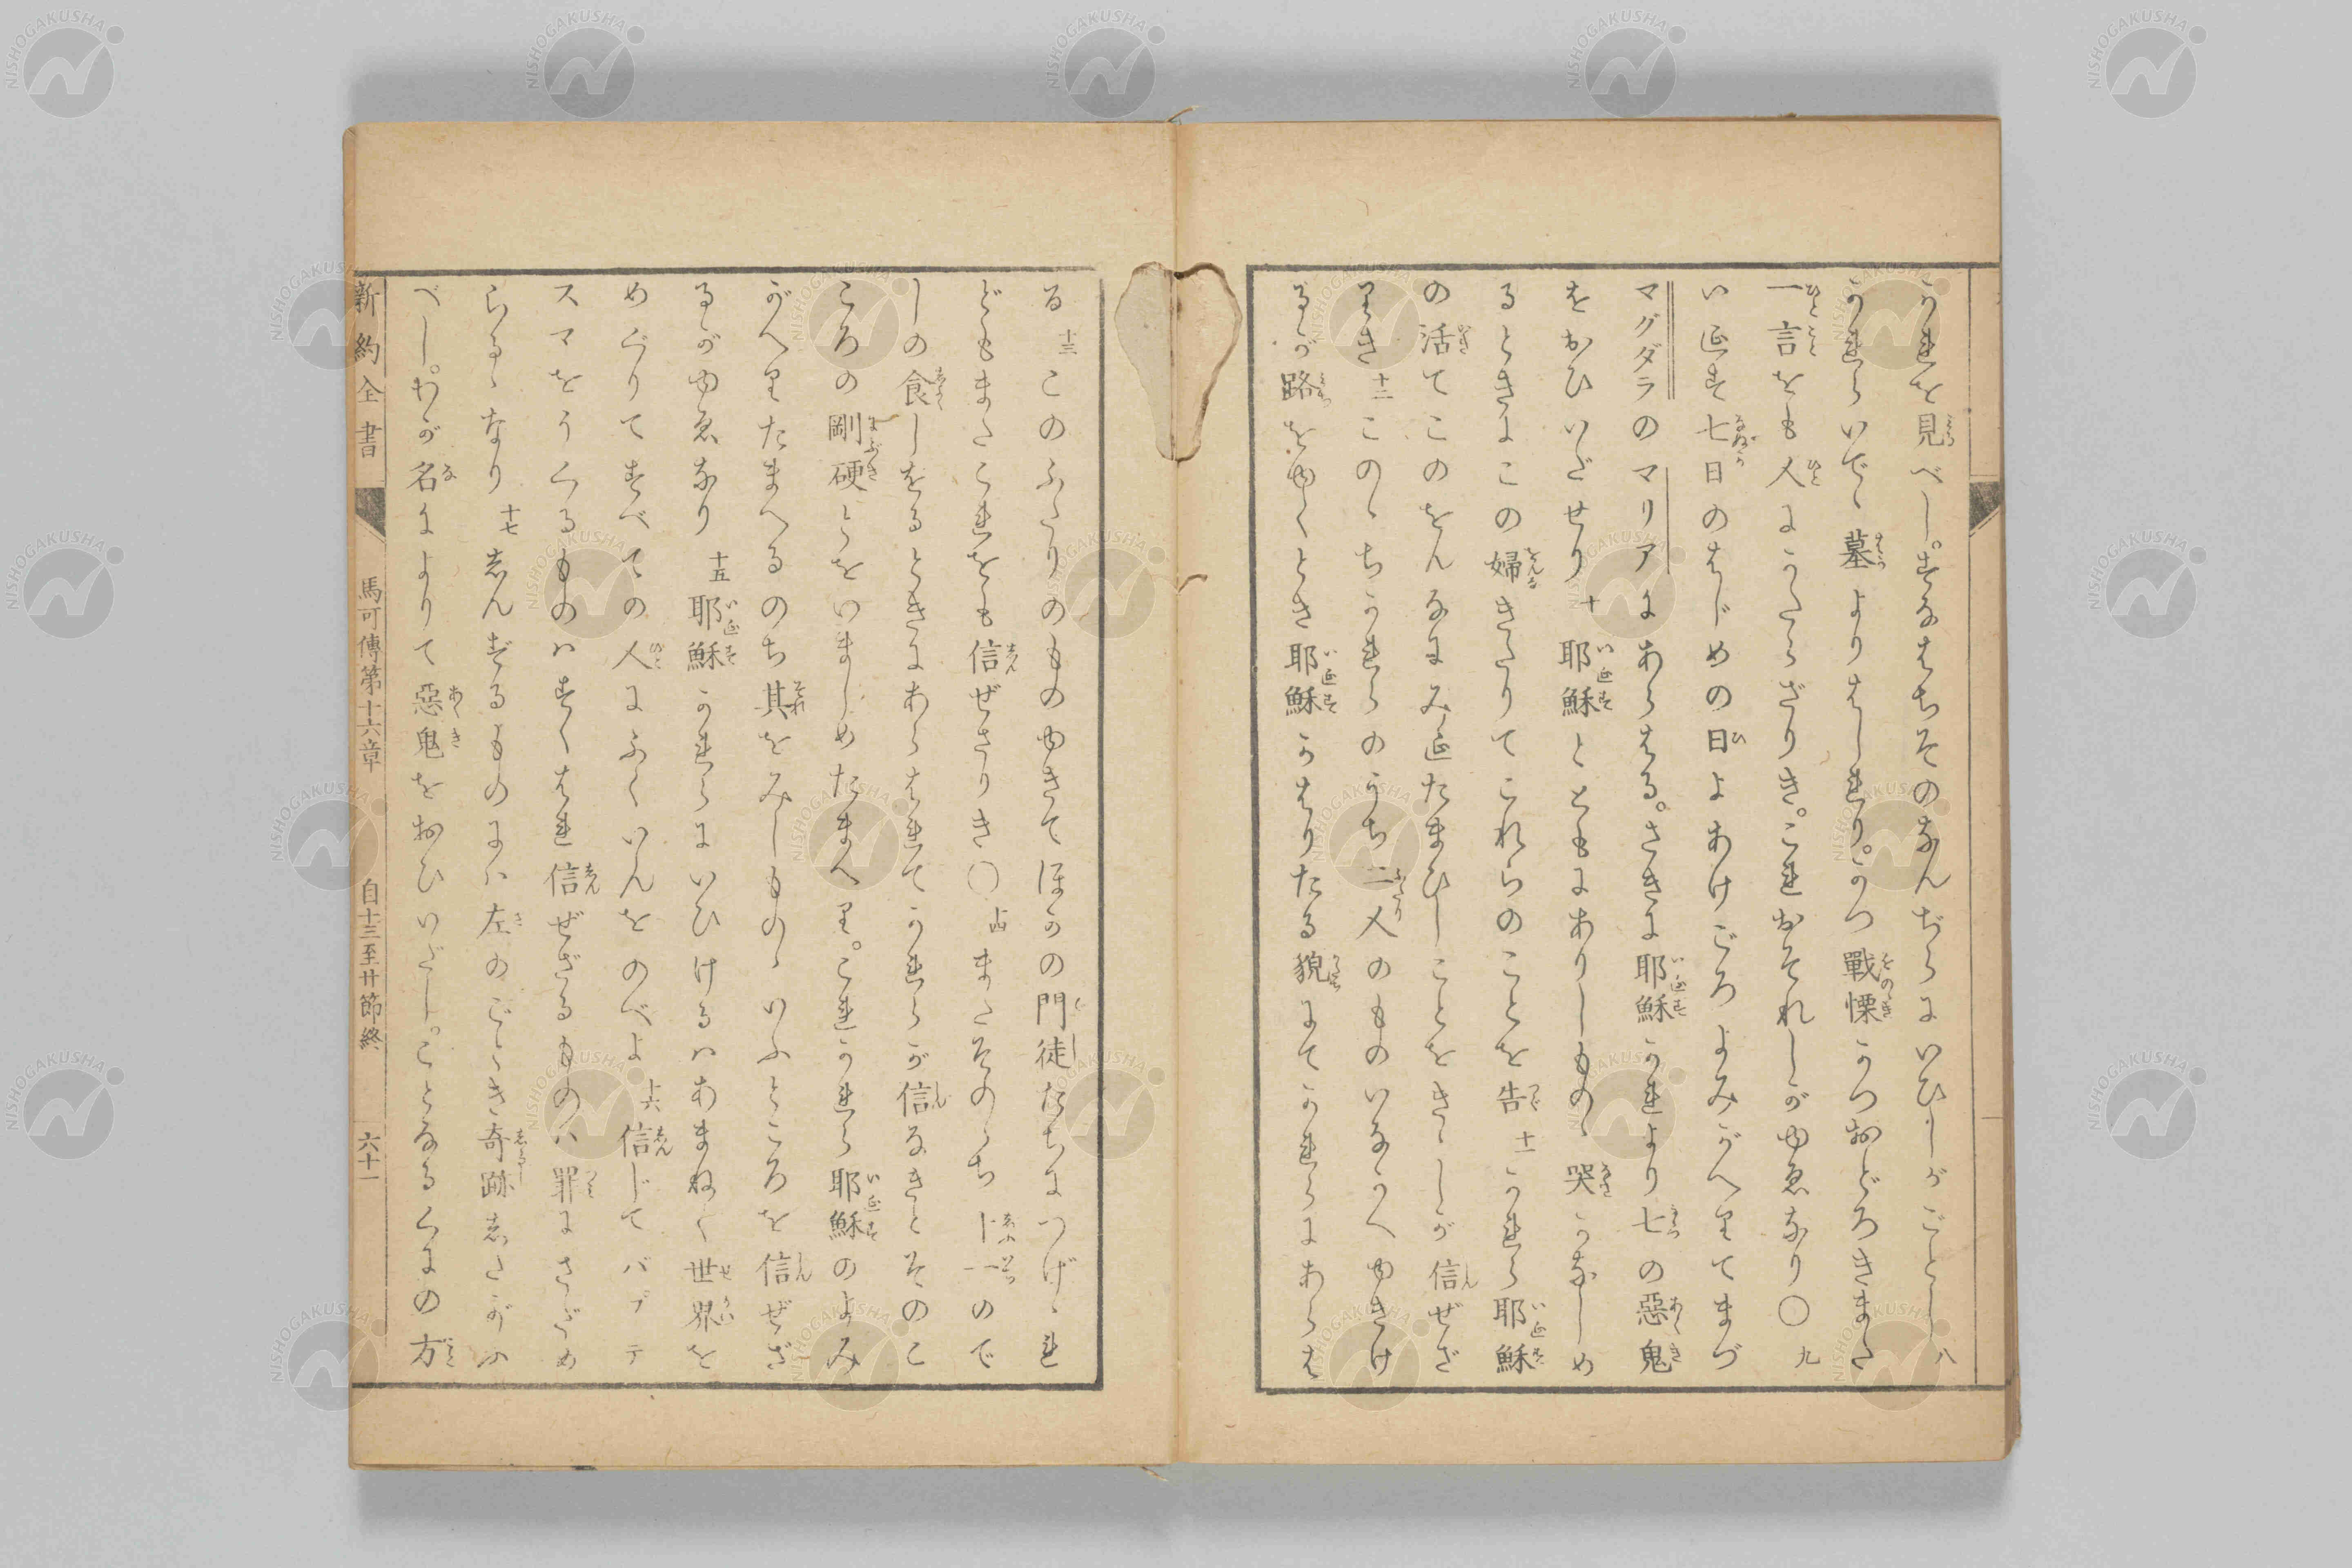 かれを見べし。すなはちそのなんぢらにいひしがごとし 八
かれらいでゝ墓よりはしれり。かつ戰慄かつおどろきまた
一言をも人にかたらざりき。これおそれしがゆゑなり〇 九
いえす七日のはじめの日よあけごろよみがへりてまづ
マグダラのマリアにあらはる。さきに耶穌かれより七の惡鬼
をおひいだせり 十 耶穌とともにありしものゝ哭かなしめ
るときにこの婦きたりてこれらのことを告 十一 かれら耶穌
の活てこのをんなにみえたまひしことをきゝしが信ぜざ
りき 十二 このゝちかれらのうち二人のものいなかへゆきけ
るが路をゆくとき耶穌かはりたる貌にてかれらにあらは
る 十三 このふたりのものゆきてほかの門徒たちにつげゝれ
どもまたこれをも信ぜざりき〇 十四 またそのゝち十一ので
しの食しをるときにあらはれてかれらが信なきとそのこ
ころの剛硬とをいましめたまへり。これかれら耶穌のよみ
がへりたまへるのち其をみしものゝいふところを信ぜざ
るがゆゑなり 十五 耶穌かれらにいひけるハあまねく世界を
めぐりてすべての人にふくいんをのべよ 十六 信じてバプテ
スマをうくるものハすくはれ信ぜざるものハ罪にさだめ
らるゝなり 十七 しんずるものにハ左のごとき奇跡したがふ
べし。わが名によりて惡鬼をおひいだし。ことなるくにの方
新約全書 馬可傳第十六章 自十三至廿節終 六十一